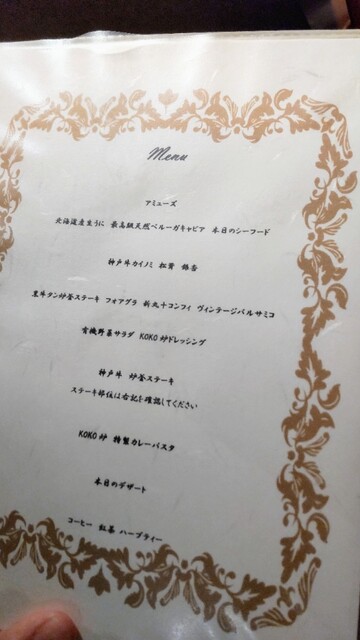 Menu
アミューズ
北海道産生うに 最高級天然ベルーガキャビア 本日のシーフード
神戸牛カイノミ 松茸 銀杏
黒牛タン炉釜ステーキ フォアグラ 新丸十コンフィ ヴィンテージバルサミコ
有機野菜サラダ KOKO炉ドレッシング
神戸牛 炉釜ステーキ
ステーキ部位は右記を確認してください
KOKO炉 特製カレーパスタ
本日のデザート
コーヒー 紅茶 ハーブティー